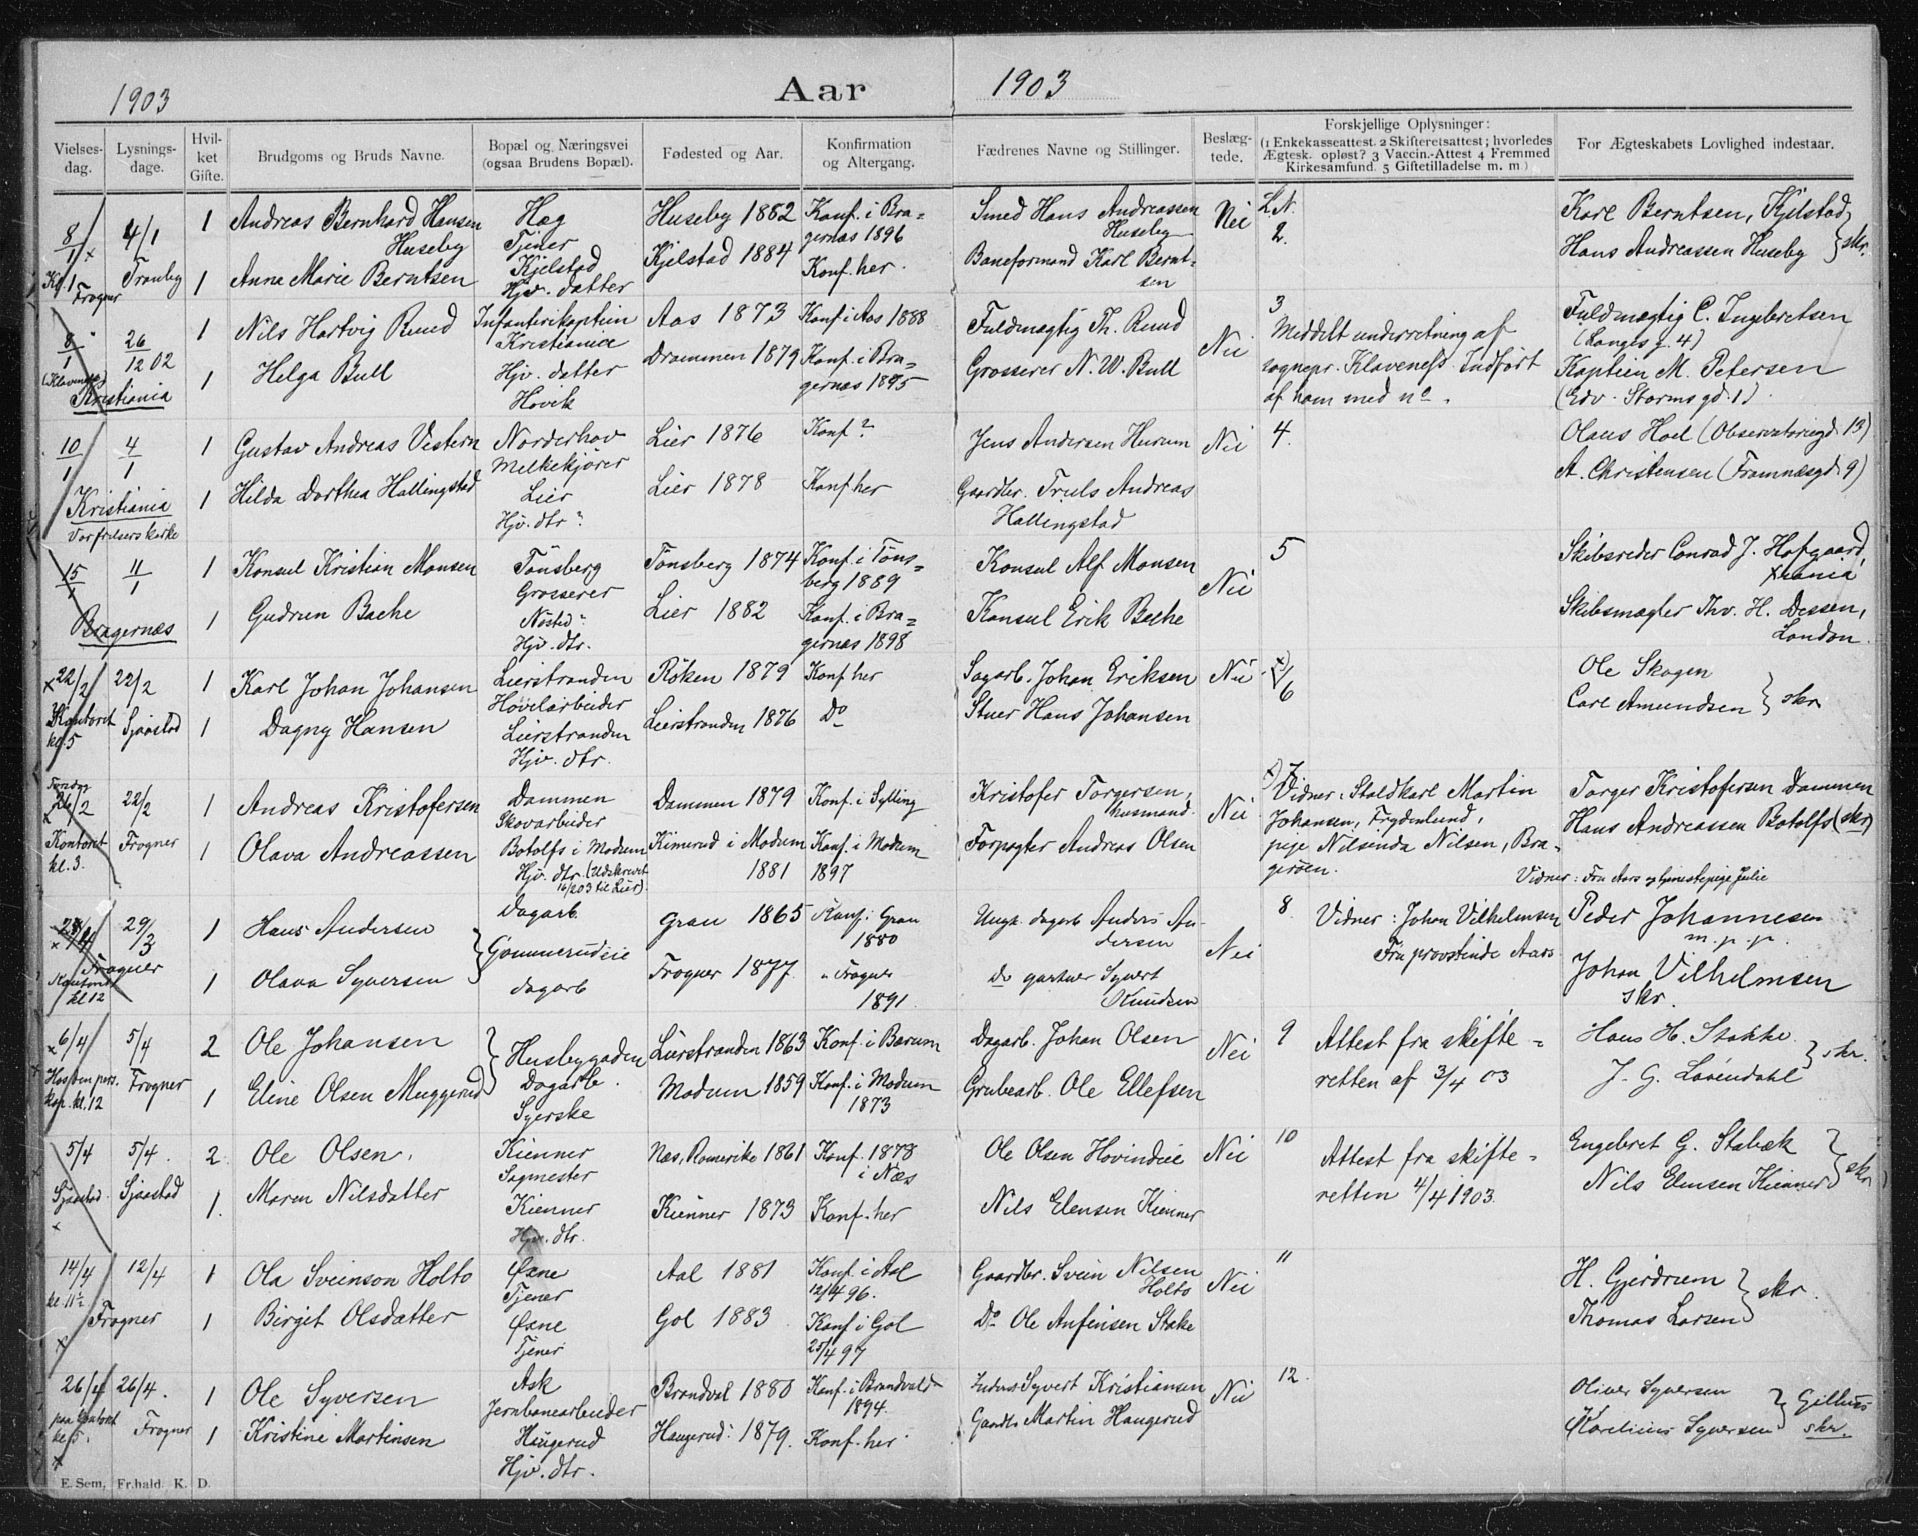 1903 Aar 1903
Vielses-dag. Lysnings-dage. Hvil-ket Gifte. Brudgoms og Bruds Navne. Bopæl og Næringsvei (ogsaa Brudens Bopæl). Fødested og Aar. Konfirmation og Altergang. Fædrenes Navne og Stillinger. Beslæg-tede. Forskjellige Oplysninger: (1 Enkekasseattest. 2 Skifteretsattest; hvorledes Ægtesk. opløst? 3 Vaccin.-Attest 4 Fremmed Kirkesamfund. 5 Giftetilladelse m. m.) For Ægteskabets Lovlighed indestaar.
8/1 4/1 1 Andreas Bernhard Hansen Hæg Huseby 1882 Konf. i Bra= Smed Hans Andreassen Nei L.N. Karl Berntsen, Kjelstad,
Huseby Tjener gernæs 1896 Huseby 2. Hans Andreassen Huseby } skr.
Kl. 1 Tranby 1 Anna Marie Berntsen Kjelstad Kjelstad 1884 Konf. her. Baneformand Karl Bernt=
Frogner Hjv. datter sen
8/1 26/12 02 1 Nils Hartvig Ruud Infanterikaptein Aas 1873 Konf. i Aas 1888 Fuldmægtig Th. Ruud Nei 3 Fuldmægtig C. Ingebretsen
Kristiania Meddelt underretning af (Langes g. 4)
1 Helga Bull Hjv. datter Drammen 1879 Konf. i Bra= Grosserer N. W. Bull sognepr. Klaveness. Indført Kaptein M. Petersen
Kristiania Høvik gernæs 1895 af ham med no. (Edv. Storms gd. 1).
10/1 4/1 1 Gustav Andreas Vestern Norderhov Lier 1876 Konf? Jens Andersen Hurum Nei 4. Olaus Hoel (Observatoriegd. 13)
Melkekjører A. Christensen (Framnæsgd. 9)
Kristiania 1 Hilda Dorthea Hallingstad Lier Lier 1878 Konf her Gaardbr. Truls Andreas
Vor frelsers kirke Hjv. dtr. Hallingstad
15/1 11/1 1 Konsul Kristian Monsen Tønsberg Tønsberg 1874 Konf. i Tøns= Konsul Alf Monsen Nei 5 Skibsreder Conrad J. Hofgaard,
Grosserer berg 1889 Xkania
1 Gudrun Bache Nøsted Lier 1882 Konf. i Bra= Konsul Erik Bache Skibsmægler Thv. H. Dessen,
Bragernæs Hjv. dtr. gernæs 1898 London.
22/2 22/2 1 Karl Johan Johansen Lierstranden Røken 1879 Konf her Sagarb. Johan Eriksen Nei 6 Ole Skogen
Høvelarbeider Carl Amundsen } skr
Kontoret kl. 5 Sjaastad 1 Dagny Hansen Lierstranden Lierstranden 1876 Do Stuer Hans Johansen
Hjv. dtr.
26/2 22/2 1 Andreas Kristofersen Dammen Dammen 1879 Konf. i Sylling Kristofer Torgersen, Nei 7 Torger Kristofersen Dammen
Skovarbeider husmand. Vidner: Staldkarl Martin Hans Andreassen Botolfs (skr)
Kontoret kl. 3. Frogner 1 Olava Andreassen Botolfs i Modum Kimerud i Modum Konf. i Modum Forpagter Andreas Olsen Johansen, Frydenlund,
Hjv. dtr. (Udskrevet 1881 1897 pige Nilsinda Nilsen, Bra=
16/2 03 til Lier). gerøen. Vidner: Fru Aars og tjenestepige Julie
29/3 1 Hans Andersen Dagarb. Gran 1865 Konf. i Gran Ungk. dagarb Anders An= Nei 8. Vidner: Johan Vilhelmsen Peder Johannesen
} Gommerudeie 1880 dersen Fru provstinde Aars m.p.p.
Frogner 1 Olava Syversen dagarb Frogner 1877. " Frogner Do gartner Syvert Johan Vilhelmsen
Kontoret kl 12 1891. Knudsen skr.
6/4 5/4 2 Ole Johansen } Husebygaden Lierstranden 1863 Konf. i Bærum Dagarb. Johan Olsen Nei 9 Attest fra skifte= Hans H. Stokke
Dagarb. retten af 3/4 03 J. G. Løvendahl } skr.
Hos pers. kap. kl. 12 Frogner 1 Eline Olsen Muggerud Syerske Modum 1859 Konf. i Modum Grubearb. Ole Ellefsen
1873
5/4 5/4. 2. Ole Olsen, Kienner Næs, Romerike 1861 Konf. 1878 Ole Olsen Hovindeie Nei 10 Engebret G. Stabæk
Sagmester i Næs Attest fra skifte= Nils Elensen Kienner } skr
Sjaastad Sjaastad 1. Maren Nilsdatter Kienner Kienner 1873 Konf. her Nils Elensen Kienner retten 4/4 1903.
Hjv. dtr.
14/4 12/4 1 Ola Sveinson Holto Øxne Aal 1881 Konf. i Aal Gaardbr. Svein Nilsen Nei 11 H. Gjerdrum
kl. 11½ Tjener 12/4 96. Holto Thomas Larsen } skr.
Frogner 1 Birgit Olsdatter Øxne Gol 1883 Konf i Gol Do Ole Anfinsen Stake
Tjener 25/4 97
26/4 26/4. 1 Ole Syversen Ask Brandval 1880 Konf. i Brandvald Syvert Kristiansen Nei 12. Oliver Syversen
Jernbanearbeider 1894. Karelius Syversen } Gilhus
paa Kontoret kl. 5. Frogner 1 Kristine Martinsen Haugerud Haugerud: 1879. Konf. her Gaardb. Martin Haugerud skr.
Hjv. dtr.
E. Sem, Fr.hald. K. D.